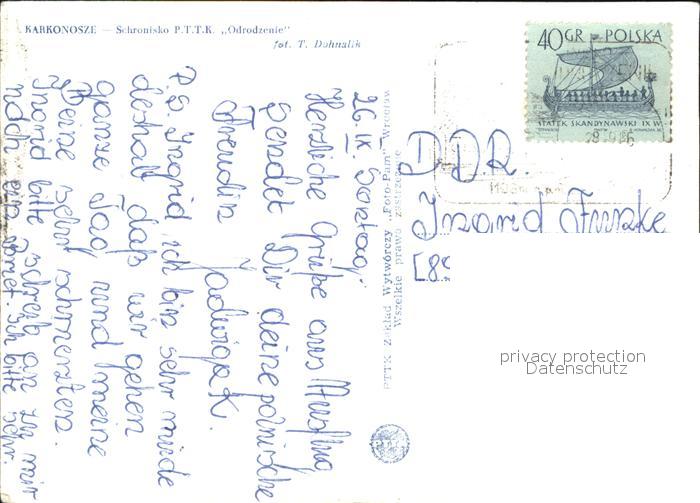 KARKONOSZE — Schronisko P.T.T.K. „Odrodzenie”
fot. T. Dohnalik
26.IX. Sontag
Herzliche Grüße aus Ausflug
sendet Dir deine polnische
Freudin Jadwiga K.
P.S. Ingrid, ich bin sehr müde
deshalb daß wir gehen
ganze Tag und meine
Beine sehr schmerzten.
Ingrid bitte schreib an zu mir
nach
ich bitte sehr.
PTTK Zakład Wytwórczy „Foto-Pam” Wrocław
Wszelkie prawa zastrzeżone
40GR POLSKA
STATEK SKANDYNAWSKI IX W.
DDR.
Ingrid Funke
[89
privacy protection
Datenschutz